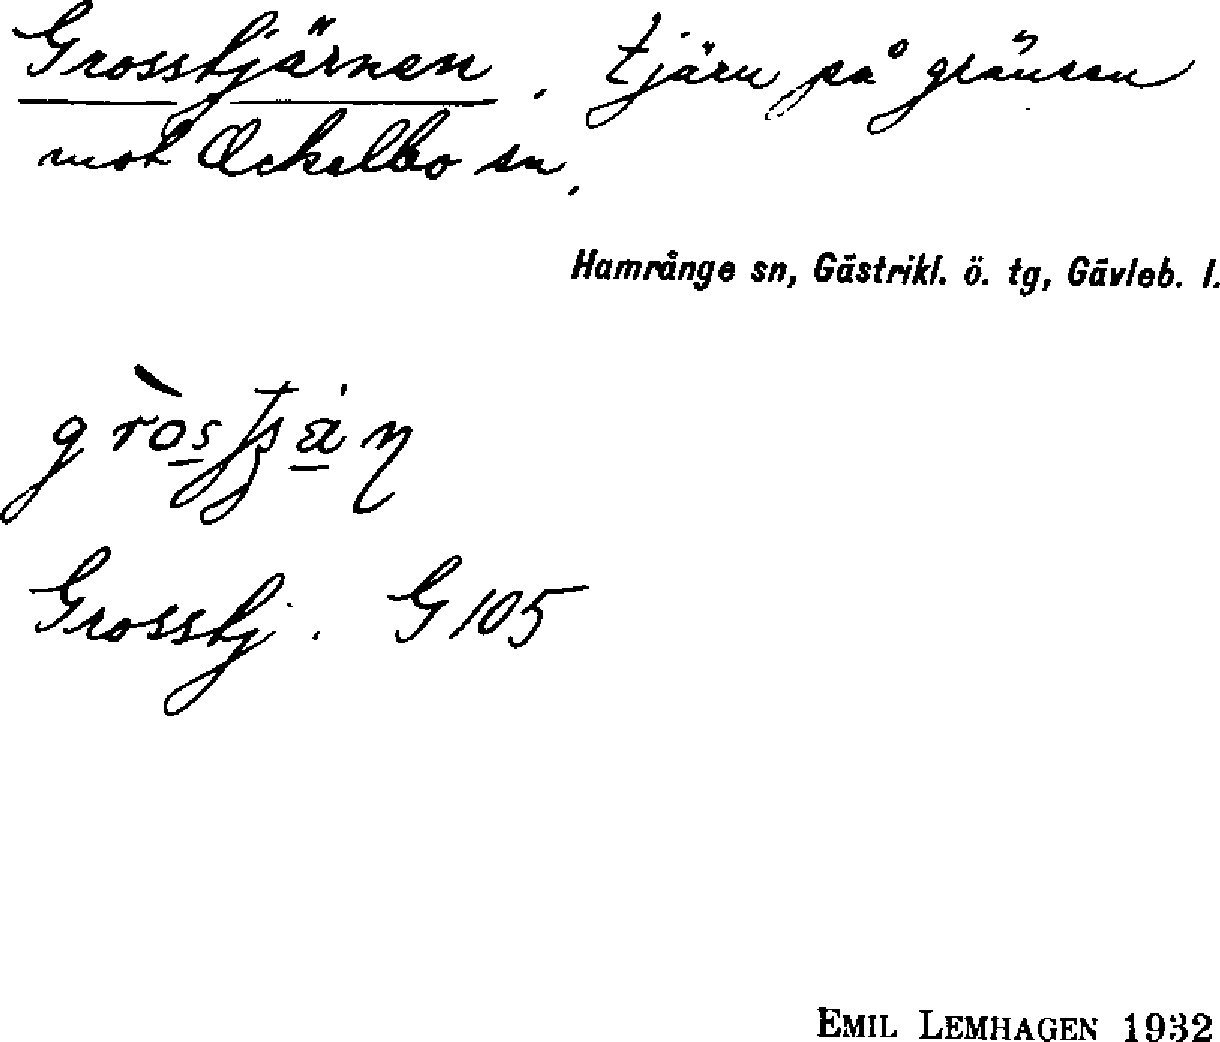 Grosstjärnen. tjärn på gränsen
mot Ockelbo sn.
Hamrånge sn, Gästrikl. ö. tg, Gävleb. l.
Grosstj. G 105
EMIL LEMHAGEN 1932